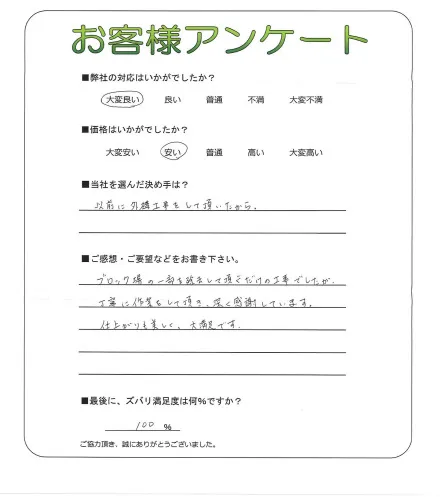 お客様アンケート
■弊社の対応はいかがでしたか？
大変良い 良い 普通 不満 大変不満
■価格はいかがでしたか？
大変安い 安い 普通 高い 大変高い
■当社を選んだ決め手は？
以前に外構工事をして頂いたから。
■ご感想・ご要望などをお書き下さい。
ブロック塀の一部を撤去して頂くだけの工事でしたが、
丁寧に作業をして頂き、深く感謝しています。
仕上がりも美しく、大満足です。
■最後に、ズバリ満足度は何％ですか？
100 ％
ご協力頂き、誠にありがとうございました。